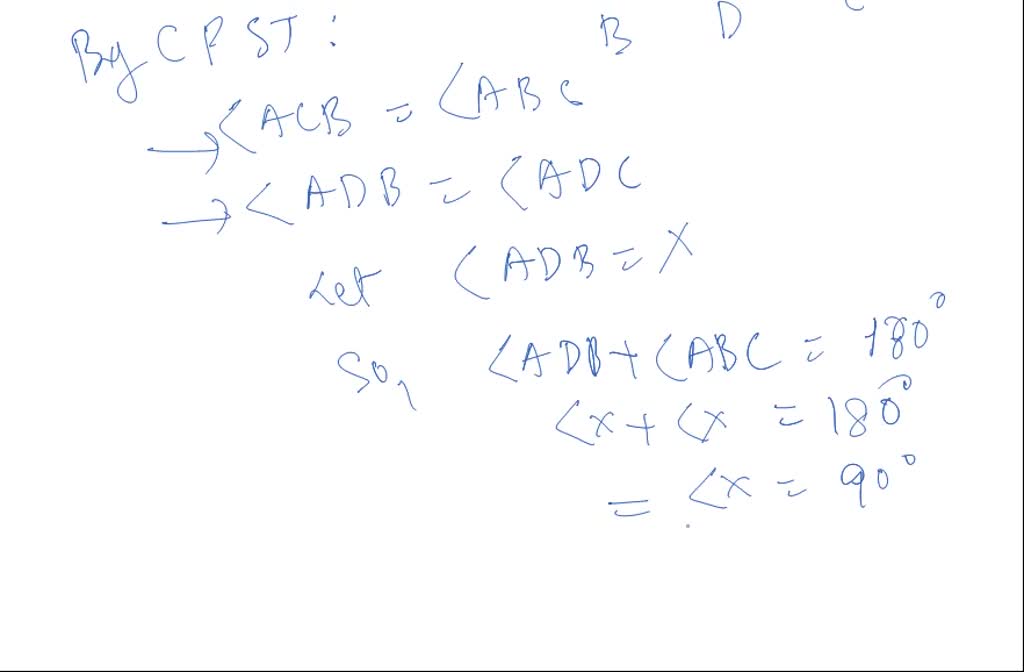 B D C
By CPST:
→ <ACB = <ABC
→ <ADB = <ADC
Let <ADB = x
So, <ADB + <ABC = 180°
<x + <x = 180°
= <x = 90°